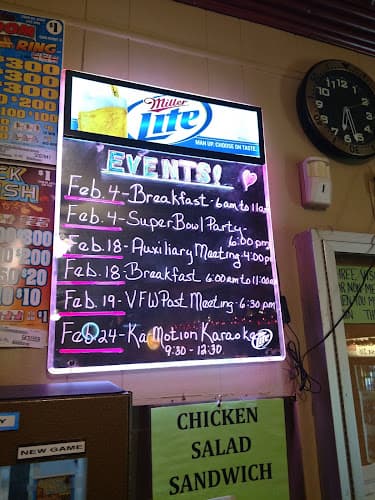 $1
RING
$300
$300
$200
$100
Miller
Lite
MAN UP. CHOOSE ON TASTE.
EVENTS!
Feb. 4-Breakfast-6am to 11am
Feb. 4-SuperBowl Party-
6:00 pm
Feb. 18-Auxiliary Meeting-4:00pm
Feb. 18-Breakfast 6:00am to 11:00am
Feb. 19-VFW Post Meeting-6:30pm
Feb 24-KarMotion Karaoke
9:30-12:30
Lite
$1
NEW GAME
CHICKEN
SALAD
SANDWICH